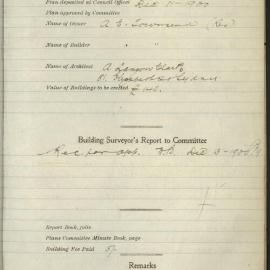 Plan deposited at Council Offices Dec 11-1900
Plan approved by Committee
Name of Owner A E Townsend
Name of Builder
Name of Architect A
Value of Buildings to be erected
Building Surveyor's Report to Committee
Rec for app. Dec 3-1900
Report Book, folio
Plans Committee Minute Book, page
Building Fee Paid 5/-
Remarks